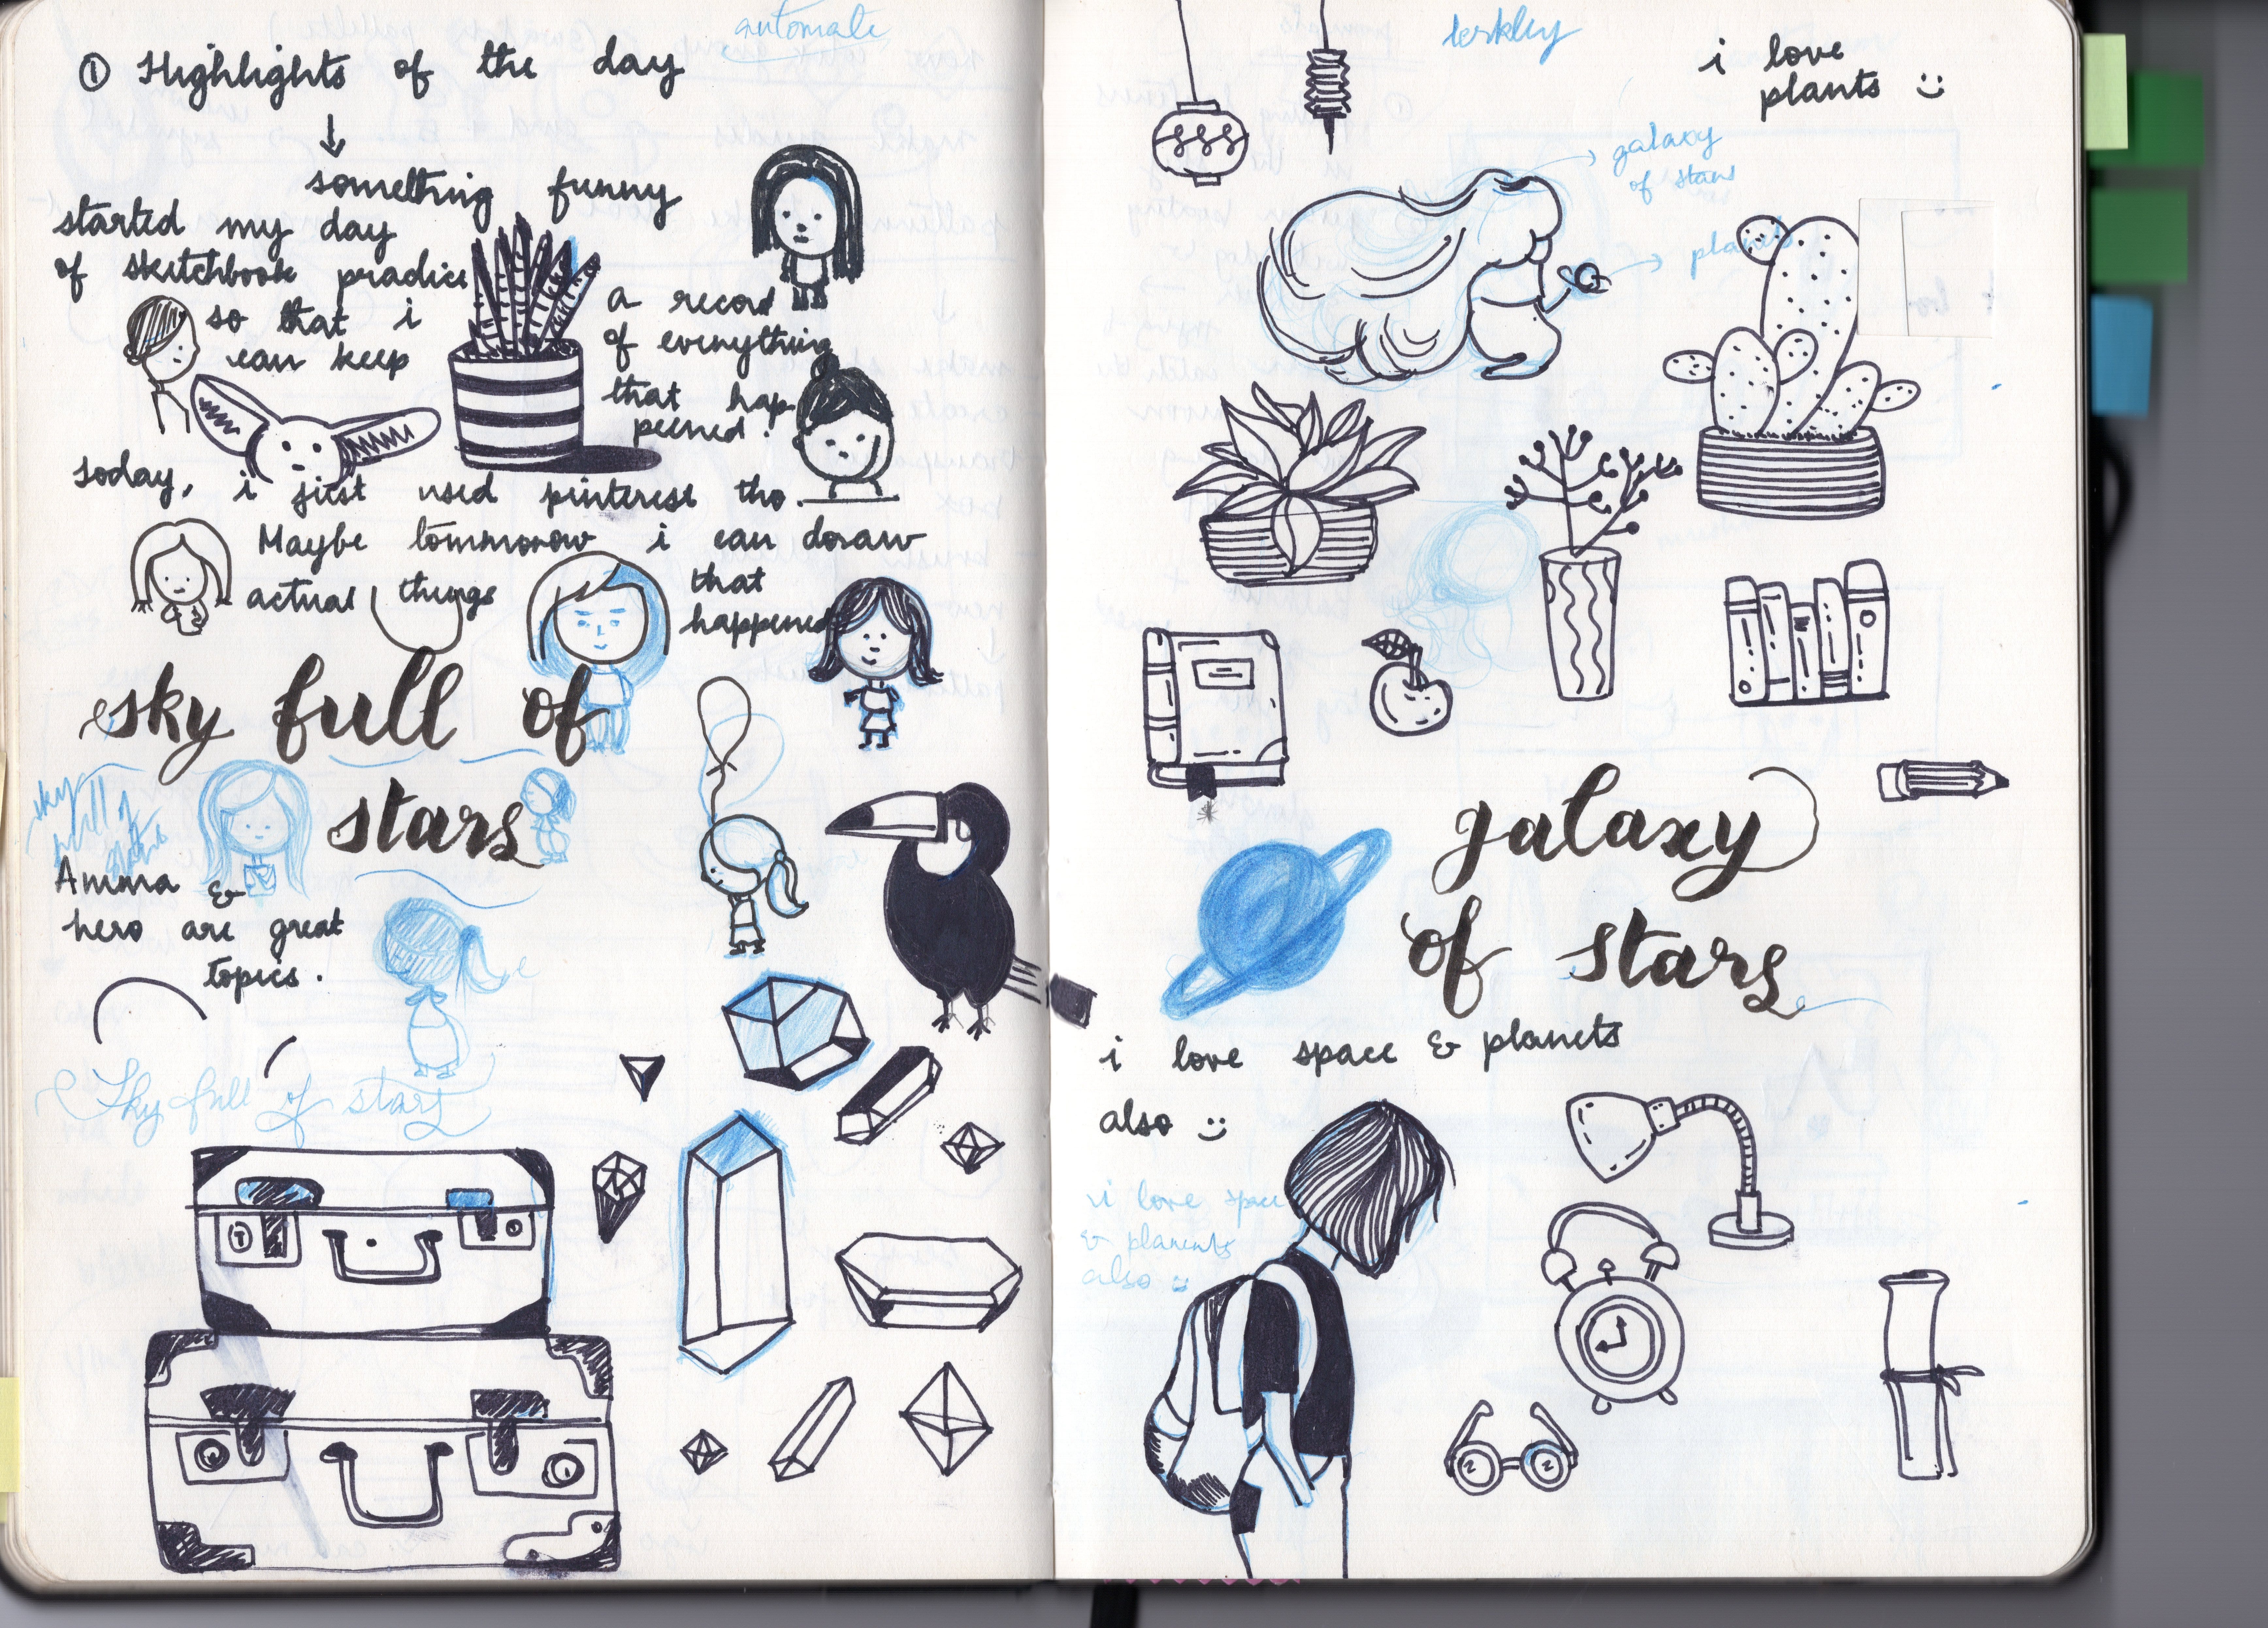 automate
① Highlights of the day
↓
something funny
started my day
of sketchbook practice
so that i
can keep
a record
of everything
that hap
pened!
today, i just used pinterest tho.
Maybe tommorow i can draw
actual things
that
happened
sky full of
stars
sky
full of
Amma &
hero are great
topics.
Sky full of stars
i love
plants :)
→ galaxy
of stars
→ planets
galaxy
of stars
i love space & planets
also :)
i love space
& planents
also :)